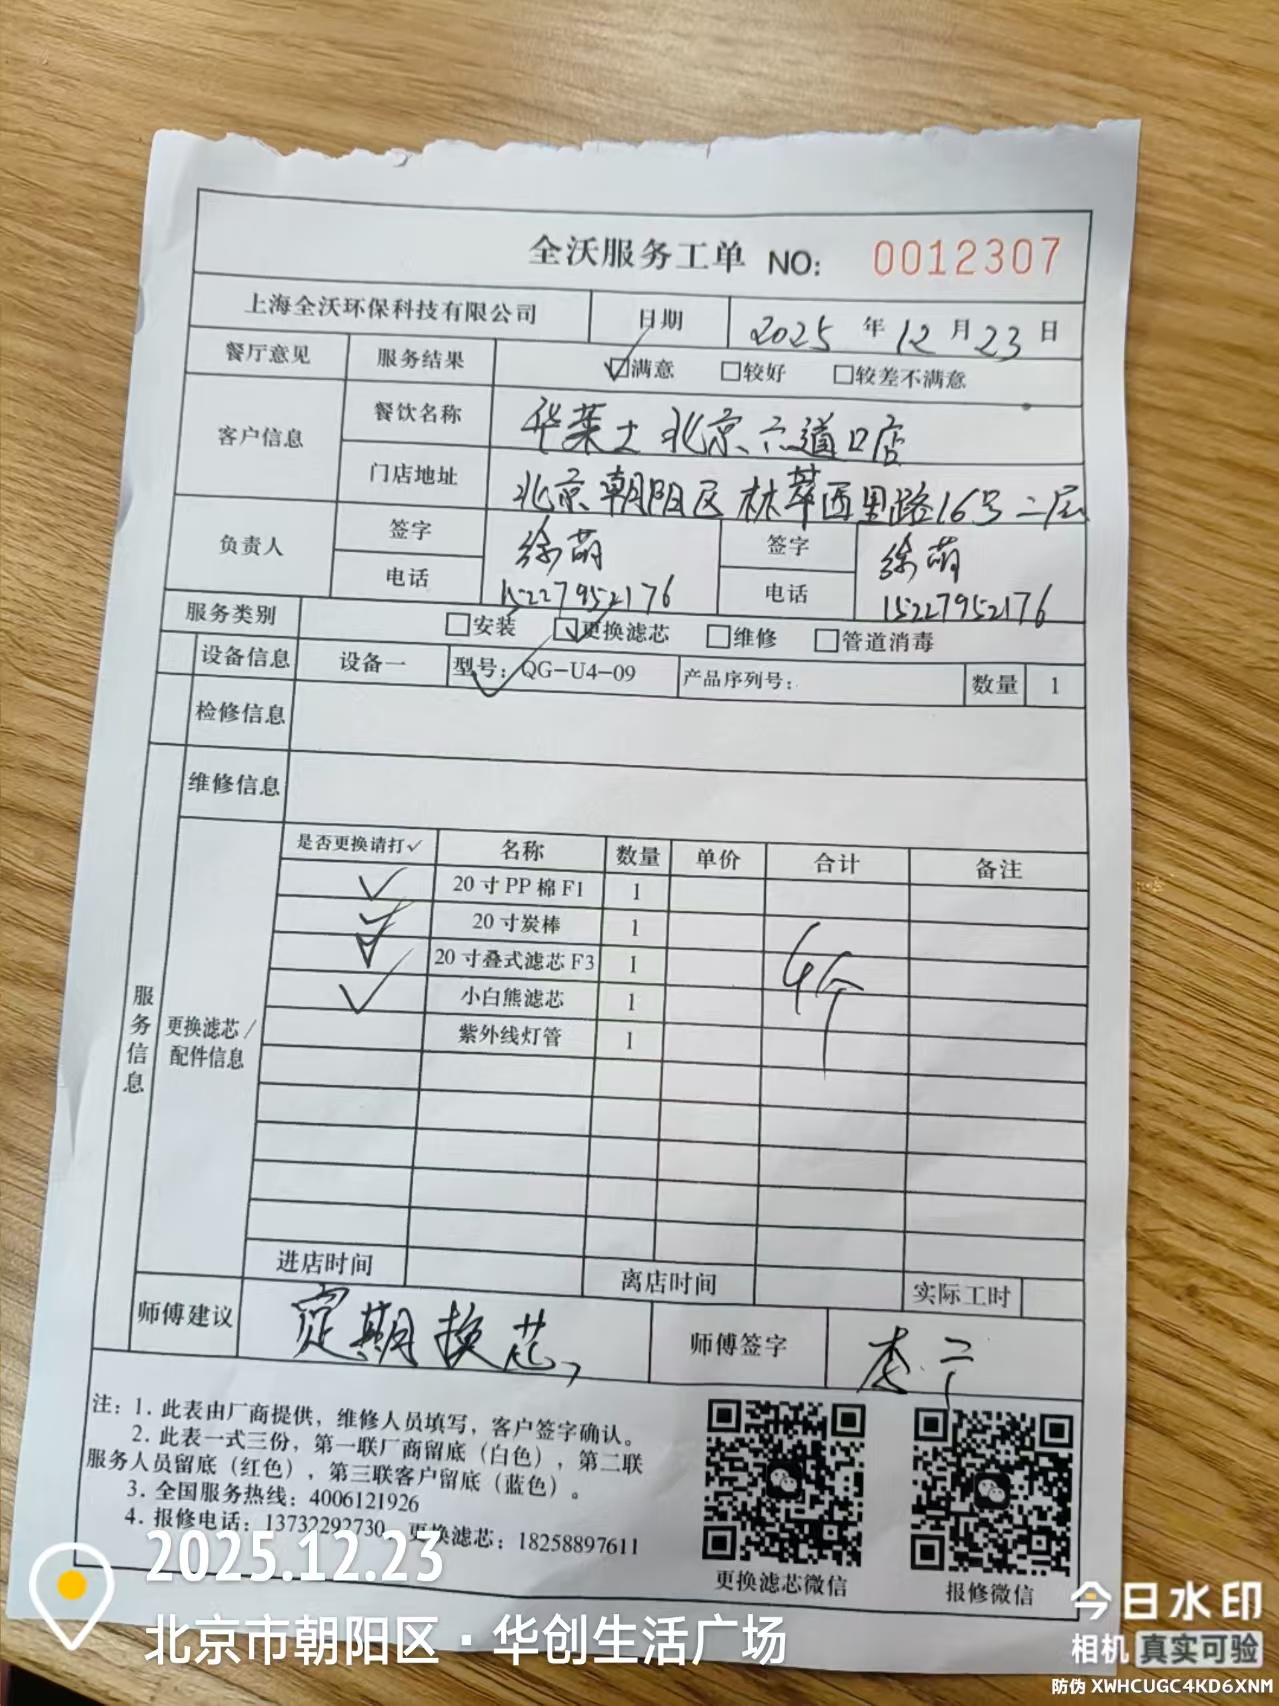 全沃服务工单 NO: 0012307
上海全沃环保科技有限公司 日期 2025 年 12 月 23 日
餐厅意见 服务结果 ☑满意 □较好 □较差不满意
客户信息 餐饮名称 华莱士 北京六道口店
门店地址 北京朝阳区林萃西里路16号二层
负责人 签字 徐萌 签字 徐萌
电话 15227952176 电话 15227952176
服务类别 □安装 ☑更换滤芯 □维修 □管道消毒
设备信息 设备一 型号: QG-U4-09 产品序列号: 数量 1
检修信息
维修信息
服务信息
更换滤芯/配件信息
是否更换请打✓ 名称 数量 单价 合计 备注
✓ 20寸PP棉F1 1
✓ 20寸炭棒 1
✓ 20寸叠式滤芯F3 1
✓ 小白熊滤芯 1
紫外线灯管 1
进店时间 离店时间 实际工时
师傅建议 定期换芯, 师傅签字
注: 1. 此表由厂商提供, 维修人员填写, 客户签字确认。
2. 此表一式三份, 第一联厂商留底 (白色), 第二联
服务人员留底 (红色), 第三联客户留底 (蓝色)。
3. 全国服务热线: 4006121926
4. 报修电话: 13732292730 更换滤芯: 18258897611
更换滤芯微信 报修微信
2025.12.23
北京市朝阳区·华创生活广场
今日水印
相机 真实可验
防伪 XWHCUGC4KD6XNM